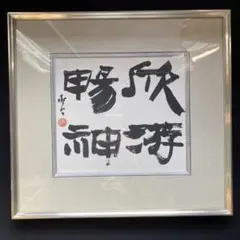 欣游
暢神